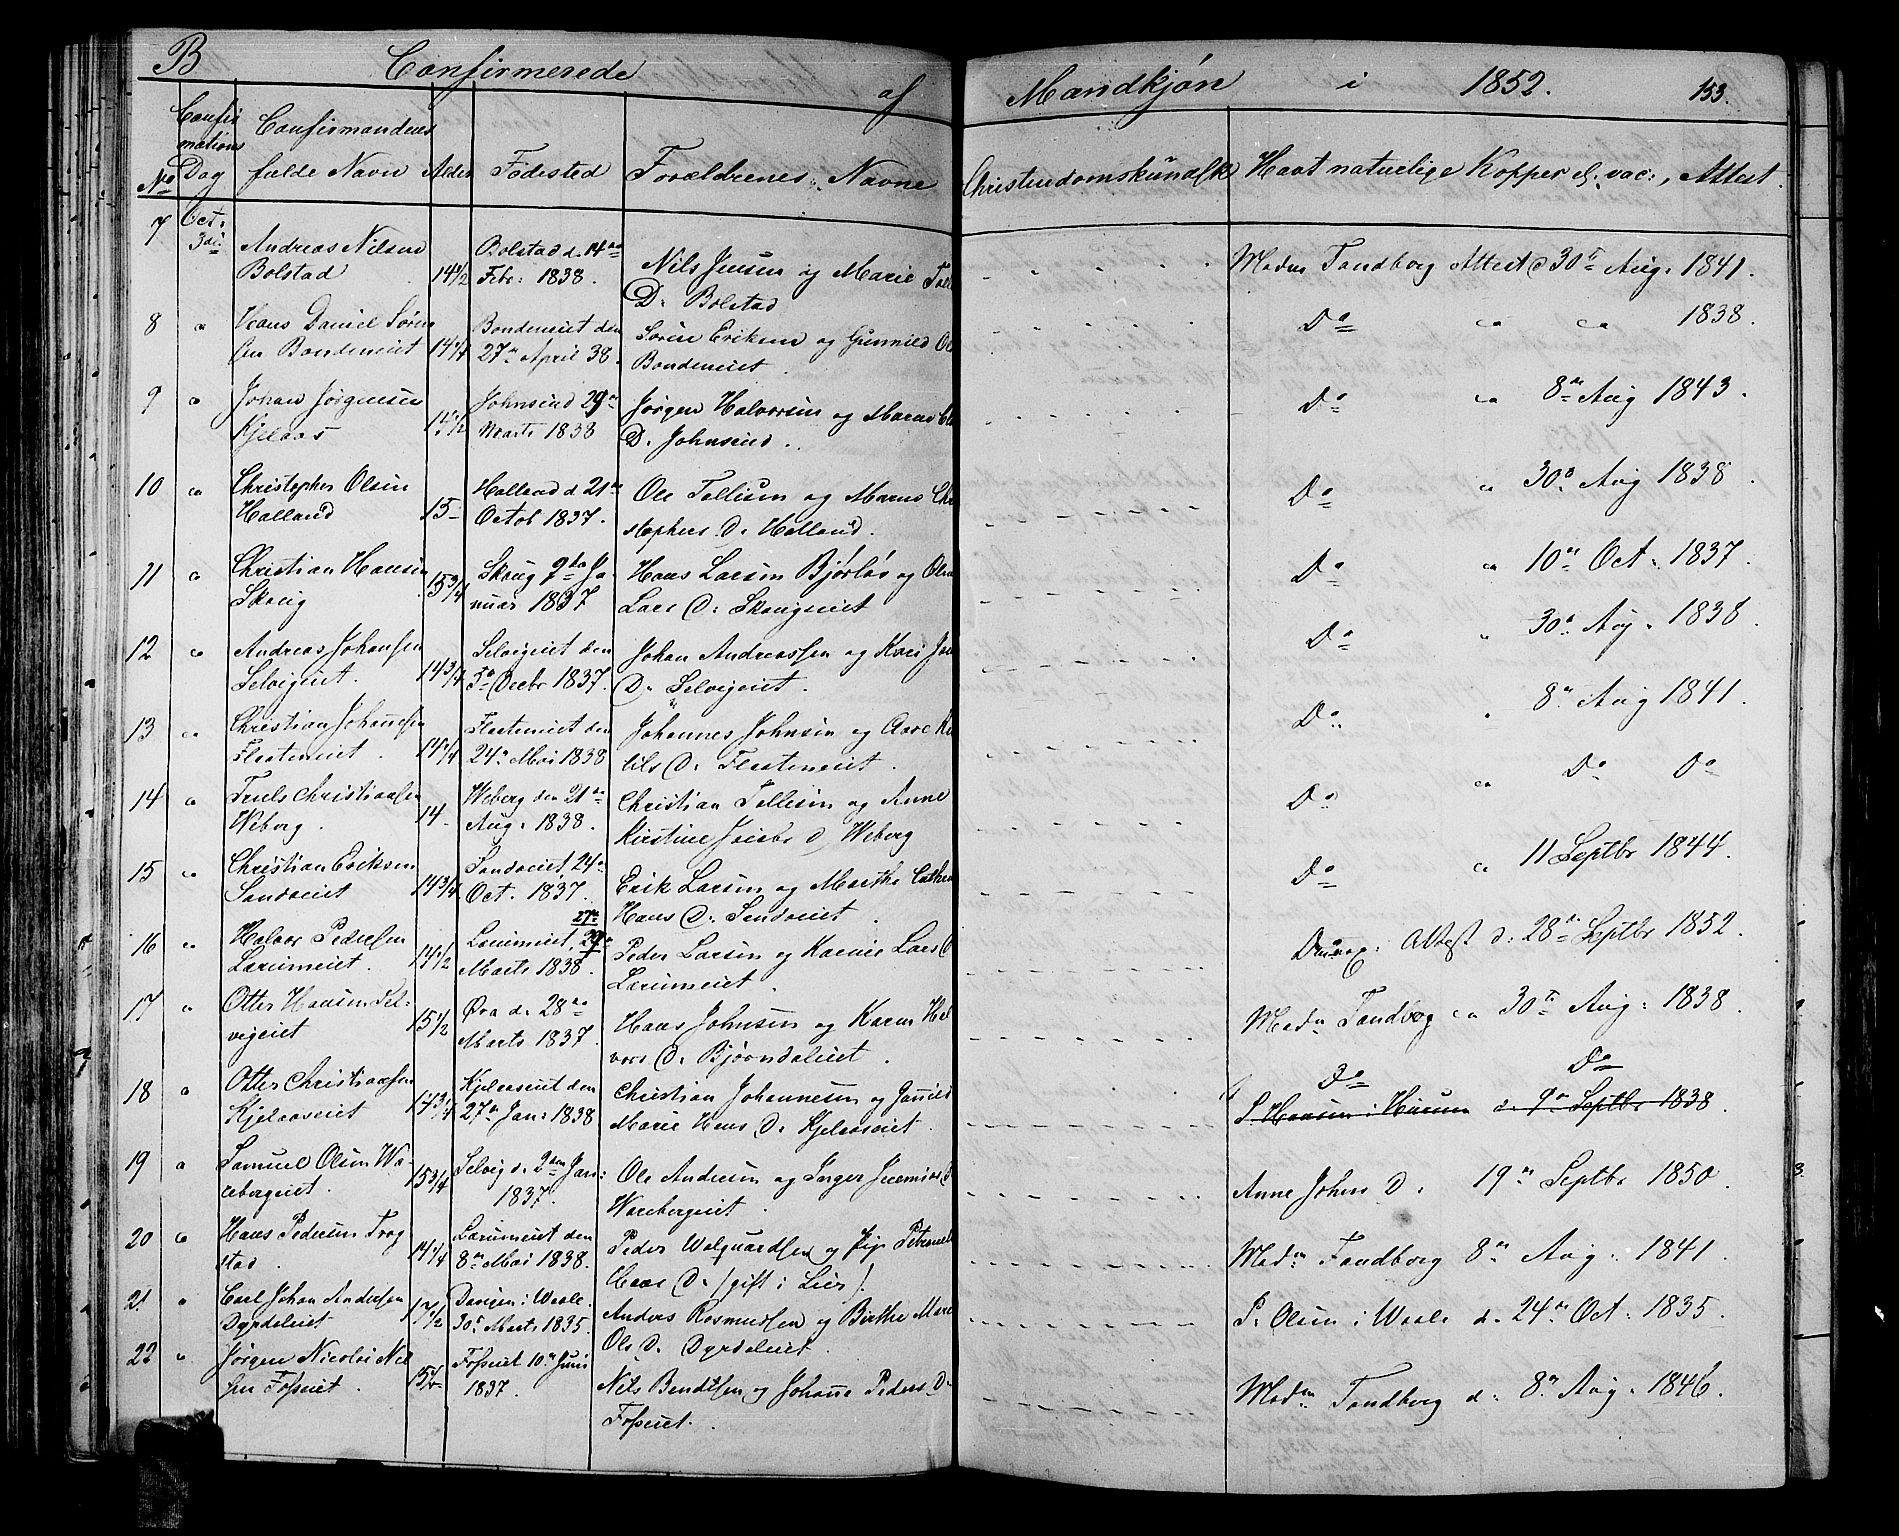 B Confirmerede af Mandkjøn i 1852. 153.
Confir
mations
Dag
No
Confirmandens
fulde Navn
Alder
Fødested
Forældrenes Navne
Christendomskundsk
Havt naturlige Kopper el. vac:, Attest.
7 Oct. 3die
Andreas Nilsen
Bolstad 14 1/2
Bolstad d. 14de
Febr: 1838.
Nils Jensen og Marie
D. Bolstad
Madm Tandberg Attest d 30te Aug. 1841.
8 "
Hans Daniel Søren
sen Bondeneiet 14 1/4
Bondeneiet den
27de April 38.
Søren Eriksen og Gunnild Ol
Bondeneiet.
Do " " 1838.
9 "
Johan Jørgensen
Kjelaas 14 1/2
Johnsrud 29de
Marts 1838
Jørgen Halvorsen og Maren
D. Johnsrud.
Do " 8de Aug 1843.
10 "
Christopher Olsen
Halland 15
Halland d. 21de
Octob 1837.
Ole Tollisen og Maren Chri
stophers D. Halland.
Do " 30te Aug 1838.
11 "
Christian Hansen
Skoug 15 3/4
Skoug 9de Ja-
nuar 1837
Hans Larsen Bjørløs og
Lars D. Skougeiet
Do " 10de Oct. 1837.
12 "
Andreas Johansen
Selvigeiet. 14 3/4
Selvigeiet den
Decbr 1837.
Johan Andreassen og Kari
D. Selvigeiet.
Do " 30te Aug. 1838.
13 "
Christian Johannesen
Flesteneiet. 14 1/4
Flesteneiet den
24de Mai 1838
Johannes Johnsen og
D. Flesteneiet.
Do " 8de Aug 1841.
14 "
Truls Christiansen
Weberg. 14
Weberg den 21de
Aug. 1838.
Christian Tollisen og Anne
Kirstine Jacobs D. Weberg
Do " Do Do
15 "
Christian Eriksen
Sandaeiet 14 3/4
Sandaeiet, 24de
Oct. 1837.
Erik Larsen og Marthe Cathr
Hans D. Sandaeiet.
Do " 11 Septbr 1844.
16 "
Halvor Pedersen
Lærumeiet. 14 1/2
27de
Lærumeiet, 29de
Marts 1838.
Peder Larsen og Karine Lars D
Lærumeiet.
Attest d. 28de Septbr 1852.
17 "
Otter Hansen Sel-
vigeiet 15 1/2
Øra d. 28de
Marts 1837.
Hans Johnsen og Karen Hal
vors D. Bjørndaleiet.
Madm Tandberg " 30te Aug. 1838.
18 "
Otter Christiansen
Kjelaaseiet 14 3/4
Kjelaaseiet den
27de Jan: 1838
Christian Johannesen og
Marie Hans D. Kjelaaseiet.
Do Do
S. Hansen i Hurum d. 9de Septbr 1838.
19 "
Samuel Olsen Wa-
rebergeiet. 15 3/4
Selvig d. 2den Jan:
1837.
Ole Andersen og Inger Jeremias D
Warebergeiet.
Anne Johns D. 19de Septbr 1850.
20 "
Hans Pedersen Trog
stad. 14 1/4
Lærumeiet den
8de Mai 1838.
Peder Walquardsen og
Hans D. (gift i Lier).
Madm Tandberg 8de Aug. 1841.
21 "
Carl Johan Andersen
Dyrdaleiet 17 1/2
i Waale.
30te Marts 1835.
Anders Rasmussen og Birthe Mari
Ols D. Dyrdaleiet.
P. Olsen i Waale d. 24de Oct. 1835.
22 "
Jørgen Nicolai Nil
sen Fosseiet. 15 1/4
Fosseiet 10de Juni
1837.
Nils Bendtsen og Johanne Peders D.
Fosseiet.
Madm Tandberg d. 8de Aug. 1846.